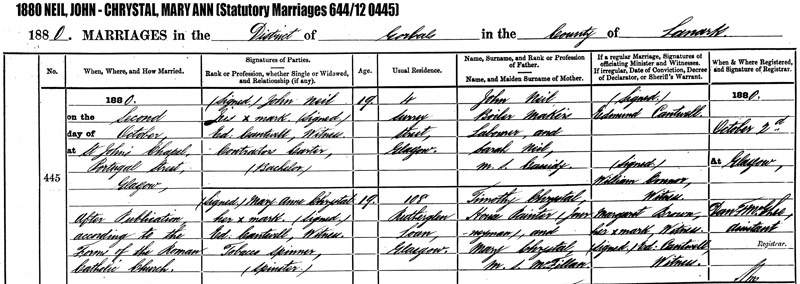 1880 NEIL, JOHN - CHRYSTAL, MARY ANN (Statutory Marriages 644/12 0445)
1880. MARRIAGES in the District of Gorbals in the County of Lanark
No.
When, Where, and How Married.
Signatures of Parties.
Rank or Profession, whether Single or Widowed, and Relationship (if any).
Age.
Usual Residence.
Name, Surname, and Rank or Profession of Father.
Name, and Maiden Surname of Mother.
If a regular Marriage, Signatures of officiating Minister and Witnesses.
If irregular, Date of Conviction, Decree of Declarator, or Sheriff's Warrant.
When & Where Registered, and Signature of Registrar.
445
1880.
on the Second
day of October
at St John's Chapel,
Portugal Street,
Glasgow,
After Publication,
according to the
Forms of the Roman
Catholic Church.
(Signed) John Neil
his x mark (signed)
Ed. Cantwell, Witness.
Contractors Carter,
(Bachelor)
(Signed) Mary Anne Chrystal
her x mark, (signed)
Ed. Cantwell, Witness.
Tobacco Spinner,
(Spinster)
19.
19.
4
Surrey
Street,
Glasgow.
108
Rutherglen
Loan,
Glasgow.
John Neil
Boiler Makers
Labourer, and
Sarah Neil,
m.s. Cassidy
Timothy Chrystal,
House Painter (Jour-
neyman), and
Mary Chrystal
m.s. McFillan
(Signed)
Edmund Cantwell.
(Signed)
William Connor,
Witness.
Margaret Brown,
her x mark Witness.
(Signed) Ed. Cantwell,
Witness.
1880.
October 2d
At Glasgow,
assistant
Registrar.